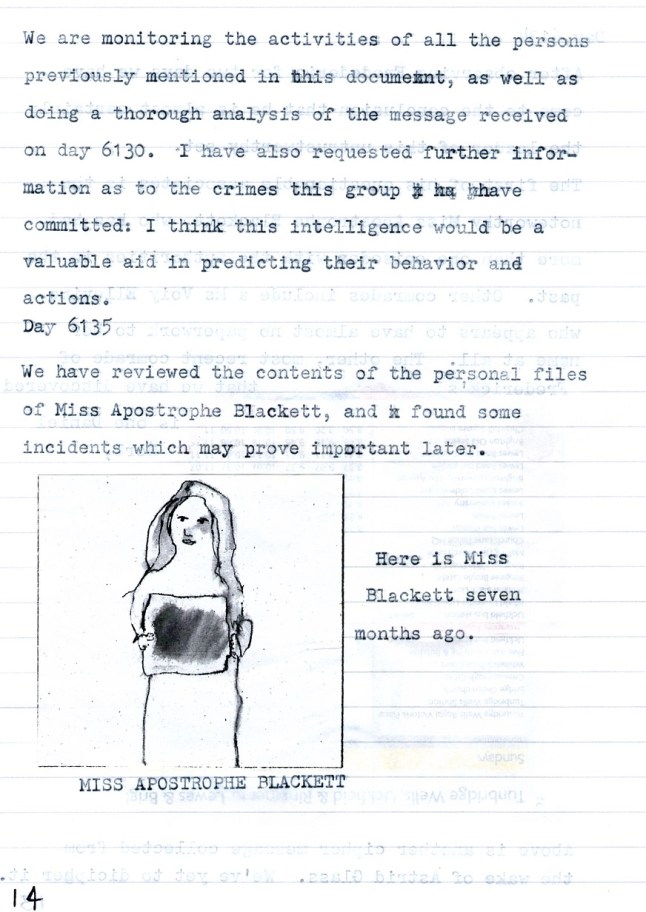 We are monitoring the activities of all the persons
previously mentioned in this document, as well as
doing a thorough analysis of the message received
on day 6130. I have also requested further infor-
mation as to the crimes this group have
committed: I think this intelligence would be a
valuable aid in predicting their behavior and
actions.
Day 6135
We have reviewed the contents of the personal files
of Miss Apostrophe Blackett, and found some
incidents which may prove important later.
Here is Miss
Blackett seven
months ago.
MISS APOSTROPHE BLACKETT
14